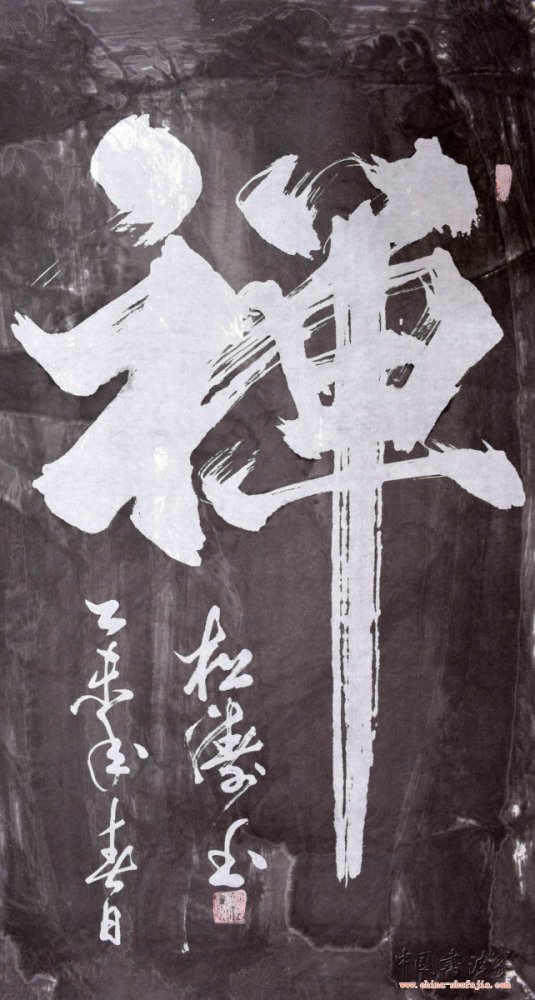 禅
松涛
乙未年春日
中国書法家
www.china-shufajia.com